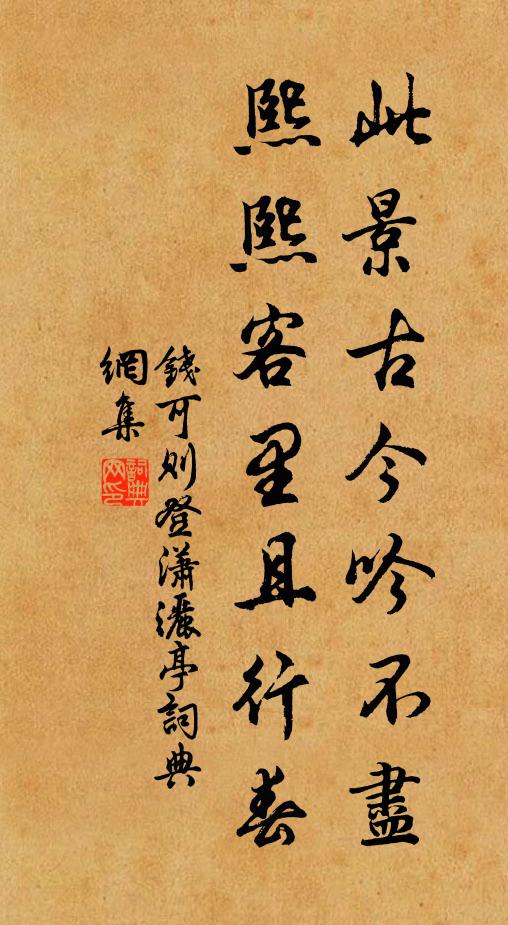 此景古今吟不盡
熙熙客里且行春
錢可則登瀟灑亭詞典
網集
詞典網印